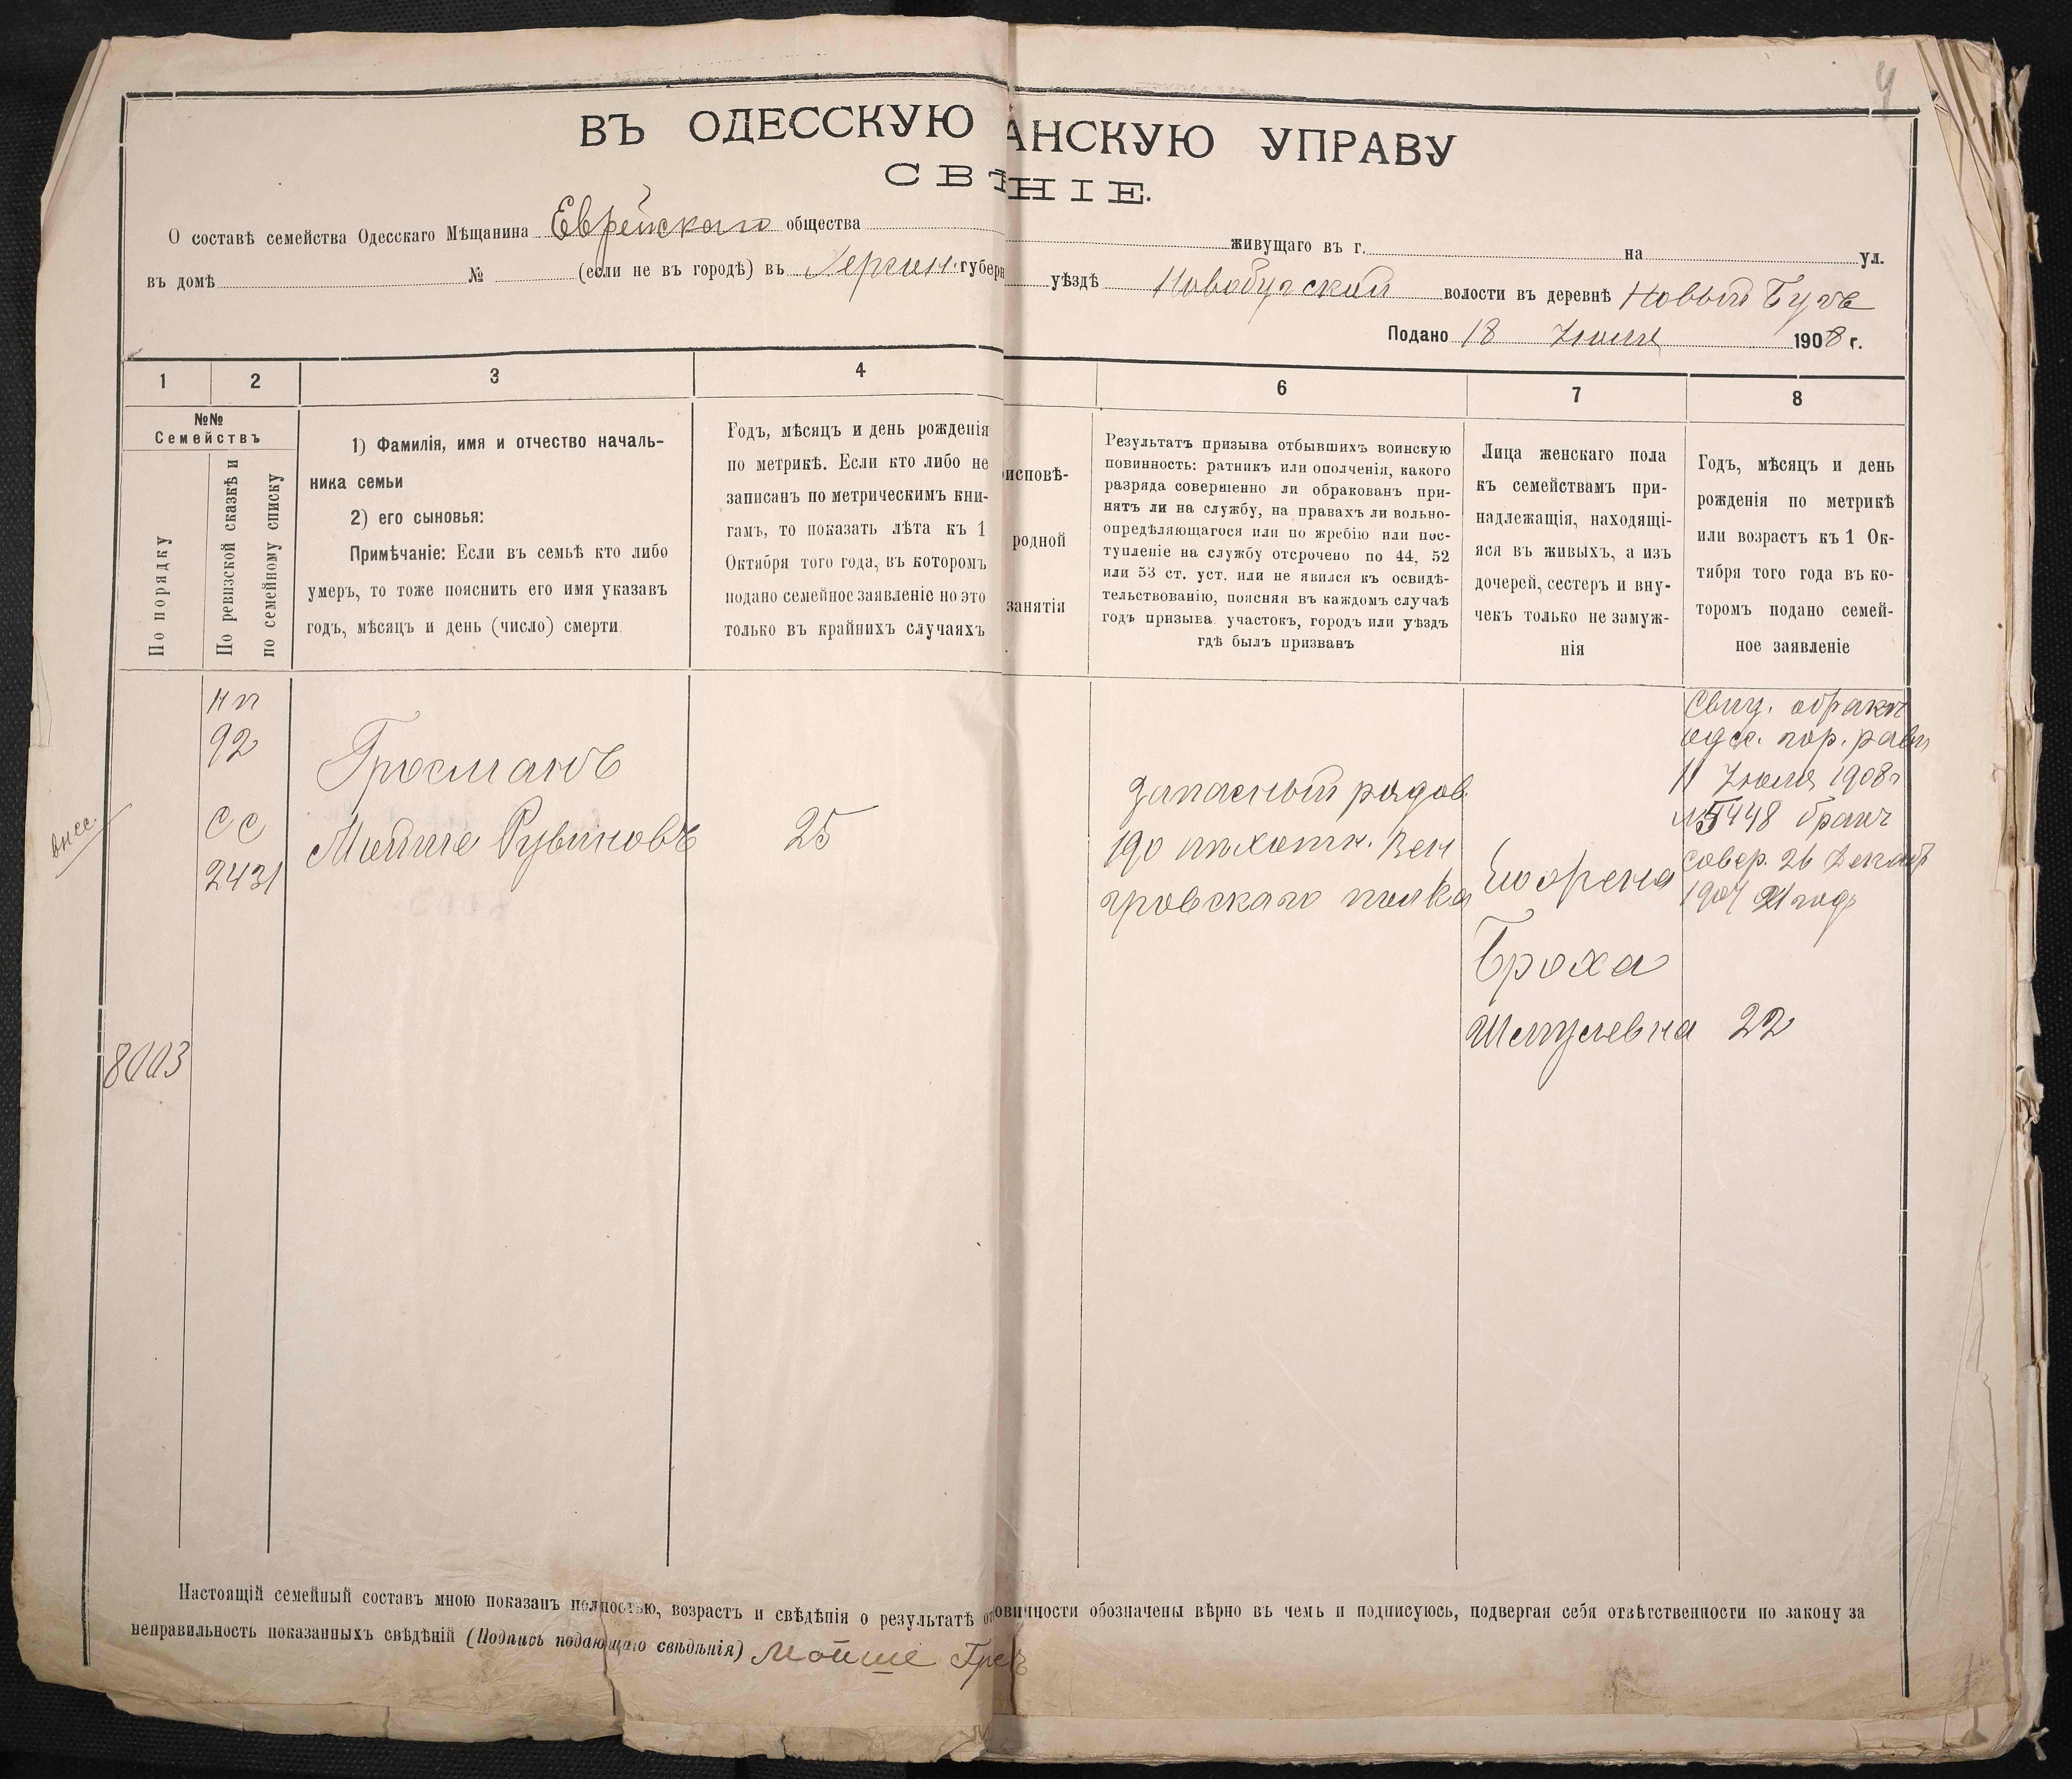 4
ВЪ ОДЕССКУЮ АНСКУЮ УПРАВУ
СВѢ НІЕ.
О составѣ семейства Одесскаго Мѣщанина Еврейскаго общества живущаго въ г. на ул.
въ домѣ № (если не въ городѣ) въ губерн уѣздѣ Новобугской волости въ деревнѣ Новый Бугъ
Подано 18 Іюля 1908 г.
1 2 3 4 6 7 8
№№
Семействъ
По порядку
По ревизской сказкѣ и
по семейному списку
1) Фамилія, имя и отчество началь-
ника семьи
2) его сыновья:
Примѣчаніе: Если въ семьѣ кто либо
умеръ, то тоже пояснить его имя указавъ
годъ, мѣсяцъ и день (число) смерти
Годъ, мѣсяцъ и день рожденія
по метрикѣ. Если кто либо не
записанъ по метрическимъ кни-
гамъ, то показать лѣта къ 1
Октября того года, въ которомъ
подано семейное заявленіе но это
только въ крайнихъ случаяхъ
исповѣ-
родной
занятія
Результатъ призыва отбывшихъ воинскую
повинность: ратникъ или ополченія, какого
разряда совершенно ли обракованъ при-
нятъ ли на службу, на правахъ ли вольно-
опредѣляющагося или по жребію или пос-
тупленіе на службу отсрочено по 44, 52
или 53 ст. уст. или не явился къ освидѣ-
тельствованію, поясняя въ каждомъ случаѣ
годъ призыва участокъ, городъ или уѣздъ
гдѣ былъ призванъ
Лица женскаго пола
къ семействамъ при-
надлежащія, находящі-
яся въ живыхъ, а изъ
дочерей, сестеръ и вну-
чекъ только не замуж-
нія
Годъ, мѣсяцъ и день
рожденія по метрикѣ
или возрастъ къ 1 Ок-
тября того года въ ко-
торомъ подано семей-
ное заявленіе
внес.
нп
92
СС
2431
8003
Гросманъ
Мойше Рувиновъ
25
запасный рядов.
190 пѣхотн. Вен
гровскаго полка
Броха
Шмулевна 22
Свид. о бракѣ
одес. гор. равв
11 Іюля 1908 г
№ 5448 бракъ
совер. 26 Декабр
1907
Настоящій семейный составъ мною показанъ полностью, возрастъ и свѣдѣнія о результатѣ от овинности обозначены вѣрно въ чемъ и подписуюсь, подвергая себя отвѣтственности по закону за
неправильность показанныхъ свѣдѣній (Подпись подающаго свѣдѣнія) Мойше